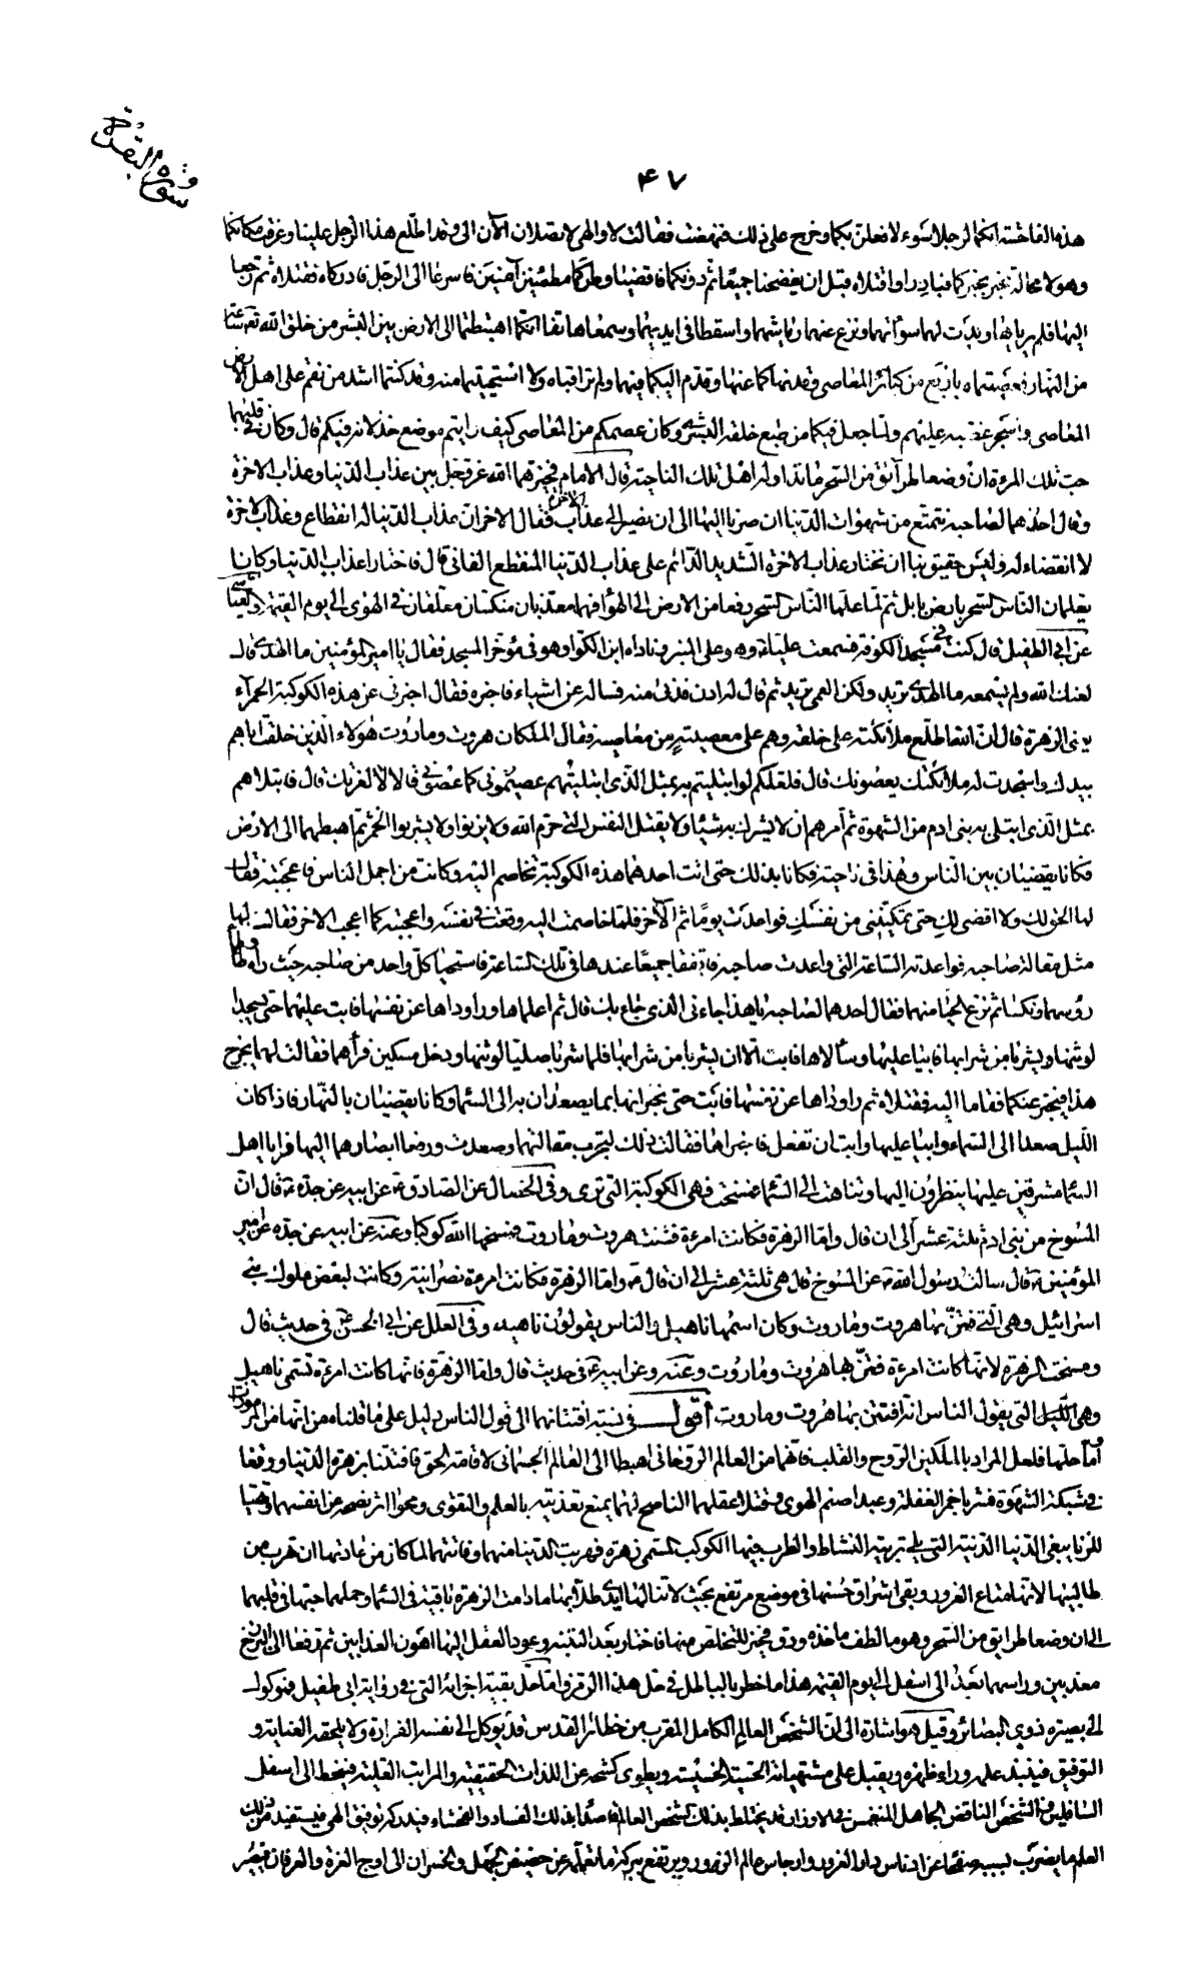 سورة البقرة
۴۷
هذه الفاحشة انكما لرجلا سوء لافعلن بكما وخرج على ذلك فنهضت فقالت لا والهي لا تصلان الآن الي وقد اطلع هذا الرجل علينا وعرف مكانكما
وهو لا محالة يخبر بخبركما فبادرا واقتلاه قبل ان يفضحنا جميعا ثم دونكما فاقضيا وطركما مطمئنين آمنين فاسرعا الى الرجل فادركاه فقتلاه ثم رجعا
اليها فلم يرياها وبدت لهما سوآتهما ونزع عنهما رياشهما واسقطا في ايديهما وسمعا هاتفا انكما اهبطتما الى الارض بين البشر من خلق الله تع ساعة
من النهار فعصيتماه باربع من كبائر المعاصي وقد نهاكما عنها وقدم اليكما فيها ولم تراقباه ولا استحييتما منه وقد كنتما اشد من نقم على اهل الارض
المعاصي واستجر غضبه عليهم ولما جعل فيكما من طبع خلقه البشري وكان عصمكم من المعاصي كيف رايتم موضع خذلانه فيكم قال وكان في قلبهما
حب تلك المرءة ان وضعا طرائق من السحر ما تداوله اهل تلك الناحية قال الامام فخيرهما الله عز وجل بين عذاب الدنيا وعذاب الاخرة
فقال احدهما لصاحبه نتمتع من شهوات الدنيا ان صرنا اليها الى ان نصير الى عذاب الاخرة فقال الاخر ان عذاب الدنيا له انقطاع وعذاب الاخرة
لا انقضاء له وليس حقيق بنا ان نختار عذاب الاخرة الشديد الدائم على عذاب الدنيا المنقطع الفاني قال فاختارا عذاب الدنيا وكانا
يعلمان الناس السحر بارض بابل ثم لما علما الناس السحر رفعا من الارض الى الهواء فهما معذبان منكسان معلقان في الهوى الى يوم القيمة والعياشي
عن ابي الطفيل قال كنت في مسجد الكوفة فسمعت عليا ع وهو على المنبر وناداه ابن الكوا وهو في مؤخر المسجد فقال يا امير المؤمنين ما الهدى قال
لعنك الله ولم يسمعه ما الهدى تريد ولكن العمى تريد ثم قال له ادن فدنى منه فساله عن اشياء فاخبره فقال اخبرني عن هذه الكوكبة الحمرآء
يعني الزهرة قال ان الله اطلع ملائكته على خلقه وهم على معصيته من معاصيه فقال الملكان هروت وماروت هؤلاء الذين خلقت اباهم
بيدك واسجدت له ملائكتك يعصونك قال فلعلكم لو ابتليتم بمثل الذي ابتليتهم عصيتموني كما عصوني قالا لا لعزتك قال فابتلاهم
بمثل الذي ابتلى به بني ادم من الشهوة ثم آمرهم ان لا يشركا به شيئا ولا يقتلا النفس التي حرم الله ولا يزنوا ولا يشربوا الخمر ثم اهبطهما الى الارض
فكانا يقضيان بين الناس هذا في ناحية وهذا في ناحية فكانا بذلك حتى اتت احدهما هذه الكوكبة تخاصم اليه وكانت من اجمل الناس فاعجبته فقال
لها الحق لك ولا اقضي لك حتى تمكنيني من نفسك فواعدت يوما ثم اتت الآخر فلما خاصمت اليه وقعت في نفسه واعجبته كما اعجبت الاخر فقال لها
مثل مقالة صاحبه فواعدته الساعة التي واعدت صاحبه فاتفقا جميعا عندها في تلك الساعة فاستحيا كل واحد من صاحبه حيث راه وطأطأ
رؤسهما ونكسا ثم نزع الحيا منهما فقال احدهما لصاحبه يا هذا جاء بي الذي جاء بك قال ثم اعلماها وراوداها عن نفسها فابت عليهما حتى يسجدا
لوثنها ويشربا من شرابها فابيا عليها وسألاها فابت الا ان يشربا من شرابها فلما شربا صليا لوثنها ودخل مسكين فرآهما فقالت لهما يخرج
هذا فيخبر عنكما فقاما اليه فقتلاه ثم راوداها عن نفسها فابت حتى يخبرانها بما يصعدان به الى السماء وكانا يقضيان بالنهار فاذا كان
الليل صعدا الى السماء وابيا عليها وابت ان تفعل فاخبراها فقالت ذلك لتجرب مقالتهما وصعدت ورفعا ابصارهما اليها فرايا اهل
السماء مشرفين عليهما ينظرون اليهما وتناهت الى السماء فمسخت فهي الكوكبة التي ترى وفي الخصال عن الصادق ع عن ابيه عن جده ع قال ان
المسوخ من بني ادم ثلثة عشر الى ان قال واما الزهرة فكانت امرءة فتنت هروت وماروت فمسخها الله كوكبا وعنه عن ابيه عن جده عن امير
المؤمنين ع قال سالت رسول الله ص عن المسوخ قال هي ثلثة عشر الى ان قال ع واما الزهرة فكانت امرءة نصرانية وكانت لبعض ملوك بني
اسرائيل وهي التي فتن بها هروت وماروت وكان اسمها ناهيل والناس يقولون ناهيد وفي العلل عن ابي الحسن ع في حديث قال
ومسخت الزهرة لانها كانت امرءة فتن بها هروت وماروت وعنه وعن ابيه ع في حديث قال واما الزهرة فانها كانت امرءة تسمى ناهيل
وهي التي يقول الناس انه افتتن بها هروت وماروت أقول في نسبة افتتانهما الى قول الناس دليل على ما قلناه من انها من المرموزات
اما حلها فلعل المراد بالملكين الروح والقلب فانهما من العالم الروحاني اهبطا الى العالم الجسماني لاقامة الحق فافتتنا بزهرة الدنيا ووقعا
في شبكة الشهوة فشربا خمر الغفلة وعبدا صنم الهوى وقتلا عقلهما الناصح لهما بمنع تغذيته بالعلم والتقوى ومحوا اثر نصحه عن انفسهما وتهيئا
للزنا ببغي الدنيا الدنية التي تلي تربية النشاط والطرب فيها الكوكب المسمى زهرة فهربت الدنيا منهما وفاتتهما لما كان من عادتها ان تهرب من
طالبيها لانها متاع الغرور وبقي اشراق حسنها في موضع مرتفع بحيث لا تنالها ايدي طلابها ما دامت الزهرة باقية في السماء وحملهما حبها في قلبهما
الى ان وضعا طرائق من السحر وهو ما لطف ماخذه ودق فخيرا للتخلص منها فاختارا بعد التنبه وعود العقل اليهما اهون العذابين ثم رفعا الى البرزخ
معذبين وراسهما بعد الى اسفل الى يوم القيمة هذا ما خطر بالبال في حل هذا الرمز واما حل بقية اجزائه التي في رواية ابي طفيل فموكول
الى بصيرة ذوي البصائر وقيل هو اشارة الى ان الشخص العالم الكامل المقرب من حظائر القدس قد يوكل الى نفسه الغرارة ولا يلحقه العناية و
التوفيق فينبذ علمه وراء ظهره ويقبل على مشتهيات الحسية الخسيسة ويطوي كشحه عن اللذات الحقيقية والمراتب العلية فينحط الى اسفل
السافلين والشخص الناقص الجاهل المنغمس في الاوزار قد يختلط بذلك الشخص العالم قاصدا بذلك الفساد والفحشاء فيدركه توفيق الهي فيستفيد من ذلك
العلم ما يضرب بسببه صفحا عن ادناس دار الغرور وارجاس عالم الزور ويرتفع ببركة ما تعلمه عن حضيض الجهل والخسران الى اوج العزة والعرفان فيصير